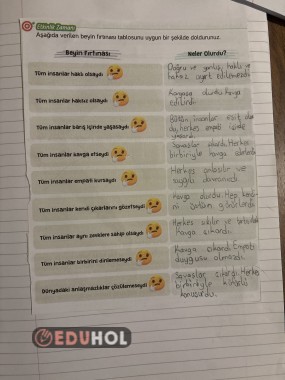 Etkinlik Zamanı
Aşağıda verilen beyin fırtınası tablosunu uygun bir şekilde doldurunuz.
Beyin Fırtınası
Neler Olurdu?
Tüm insanlar haklı olsaydı
Doğru ve yanlış, haklı ve
haksız ayırt edilemezdi
Tüm insanlar haksız olsaydı
Kargaşa olurdu. Kavga
edilirdi
Tüm insanlar barış içinde yaşasaydı
Bütün insanlar eşit olur
du, herkes
Tüm insanlar kavga etseydi
Savaşlar olurdu. Herkes
birbiriyle kavga ederdi
Tüm insanlar empati kursaydı
Herkes anlaşılır ve
saygılı davranırdı
Tüm insanlar kendi çıkarlarını gözetseydi
Kavga olurdu. Hep kendi
ni
Tüm insanlar aynı zevklere sahip olsaydı
Herkes
kavga çıkardı.
Tüm insanlar birbirini dinlemeseydi
Kavga çıkardı. Empati
duygusu olmazdı.
Dünyadaki anlaşmazlıklar çözülemeseydi
Savaşlar çıkardı. Herkes
birbiriyle
konuşurdu.
EDUHOL